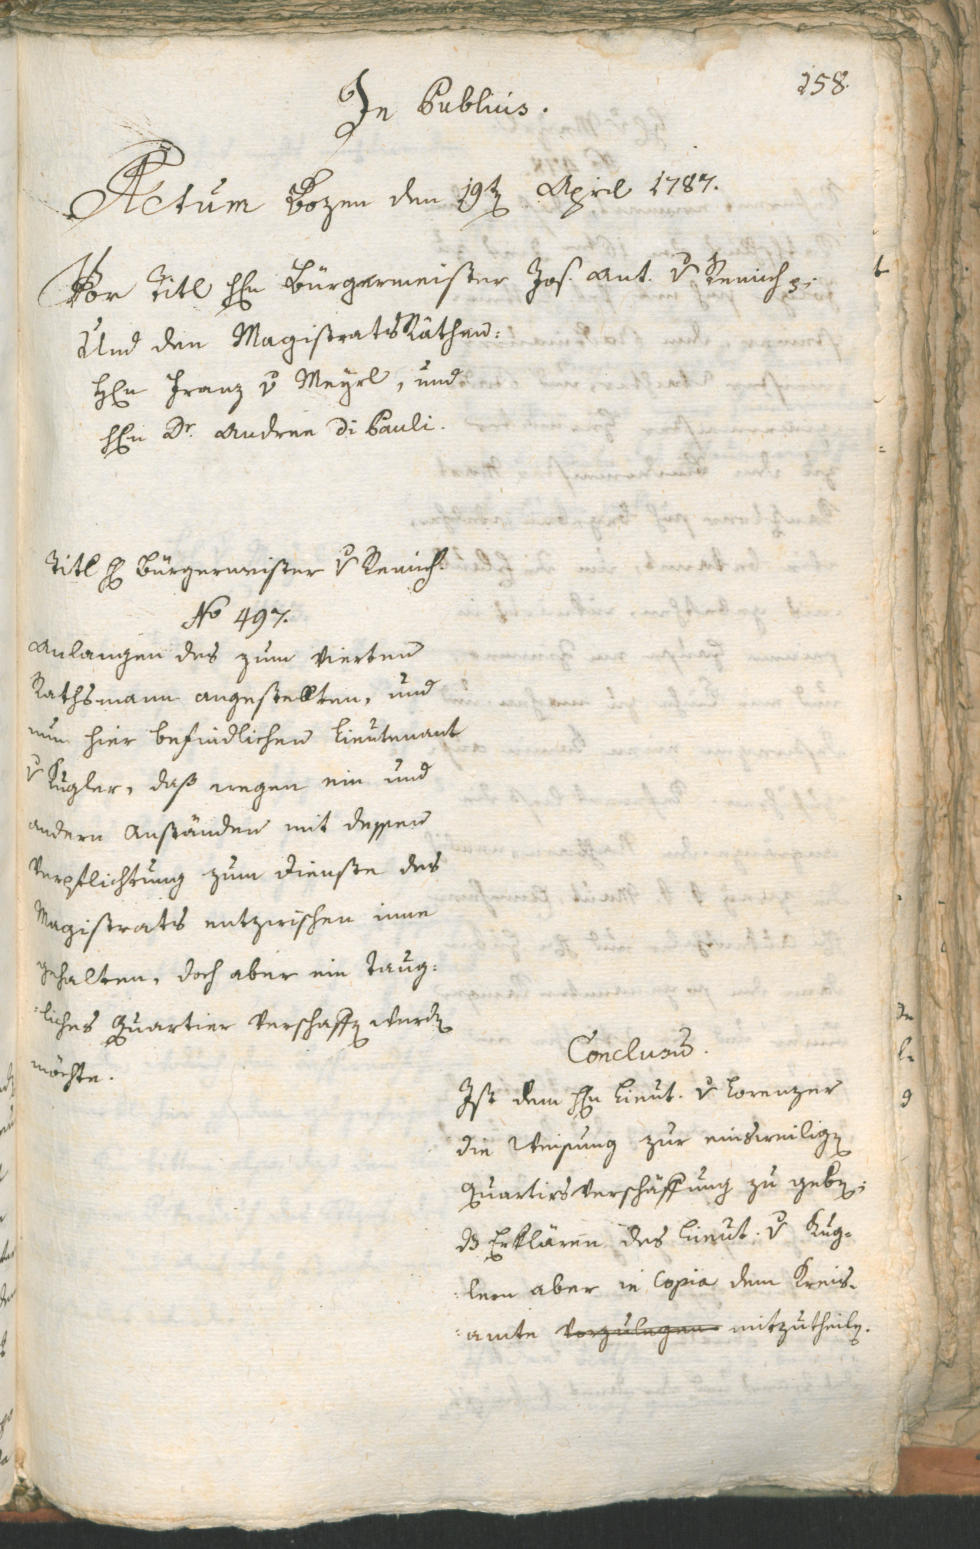 258.
In Publicis.
Actum Bozen den 19t April 1787.
Vor Titl Hn Bürgermeister Jos. Ant. v Remich;
Und den Magistrats Räthen:
Hn Franz v Meyrl, und
Hn Dr. Andree Di Pauli.
Titl H Bürgermeister v Remich.
No 497.
Anlangen des zum vierten
Rathsmann angestellten, und
nun hier befindlichen Lieutenant
v Kugler, daß wegen ein und
andern Anständen mit dessen
Verpflichtung zum Dienste des
Magistrats entzwischen inne
gehalten, doch aber ein taug:
:liches Quartier verschaft werde
möchte.
Conclusum.
Ist dem Hn Lieut. v Lorenzer
die Weisung zur einsweilig
Quartirsverschaffung zu gebe;
Erklären des Lieut. v Kug=
:lern aber in Copia dem Kreis=
:amte vorzulegen mitzutheile.